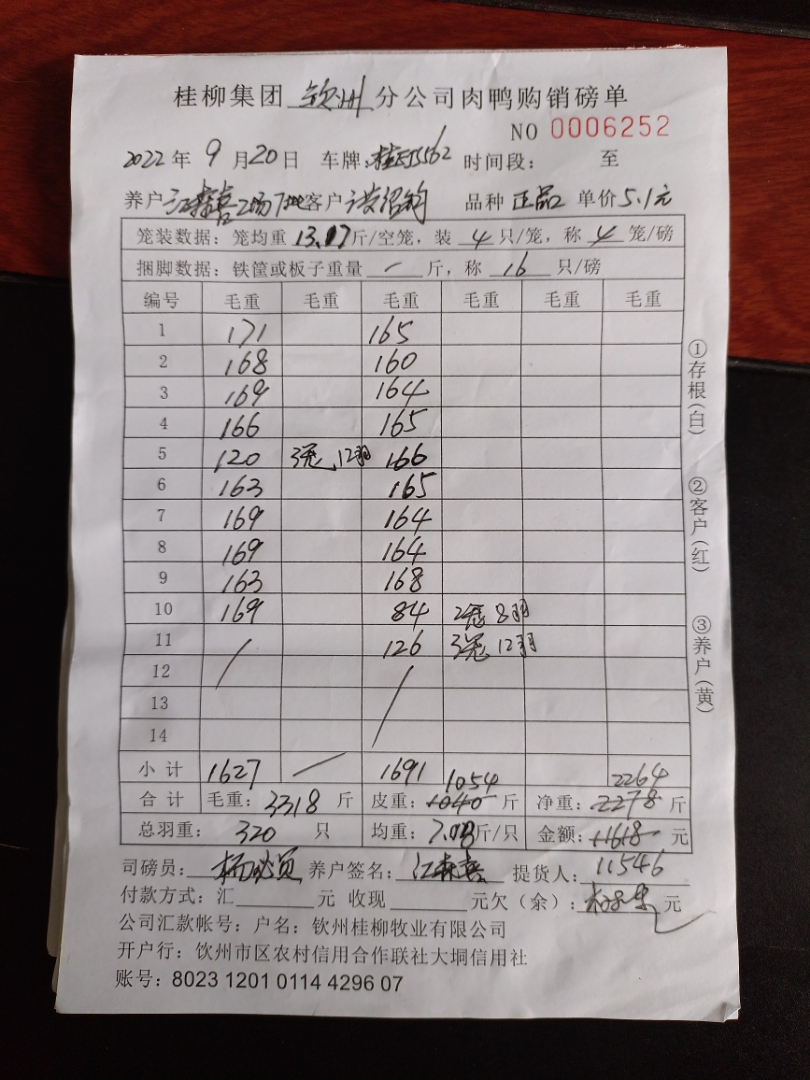 桂柳集团 钦州 分公司肉鸭购销磅单
NO 0006252
2022 年 9 月 20 日 车牌: 桂 5562 时间段: 至
养户 江森喜 2场7地 客户 绍钧 品种 正品2 单价 5.1元
笼装数据: 笼均重 13.17 斤/空笼, 装 4 只/笼, 称 4 笼/磅
捆脚数据: 铁筐或板子重量 — 斤, 称 16 只/磅
编号 毛重 毛重 毛重 毛重 毛重 毛重
1 171 165
2 168 160
3 169 164
4 166 165
5 120 3笼, 12羽 166
6 163 165
7 169 164
8 169 164
9 163 168
10 169 84 2笼 8羽
11 / 126 3笼 12羽
12
13
14
小计 1627 — 1691 1054 2264
合计 毛重: 3318 斤 皮重: 1040 斤 净重: 2278 斤
总羽重: 320 只 均重: 7.08 斤/只 金额: 11618 元
司磅员: 养户签名: 江森喜 提货人: 11546
付款方式: 汇 元 收现 元欠(余): 元
公司汇款帐号: 户名: 钦州桂柳牧业有限公司
开户行: 钦州市区农村信用合作联社大垌信用社
账号: 8023 1201 0114 4296 07
①存根(白)
②客户(红)
③养户(黄)